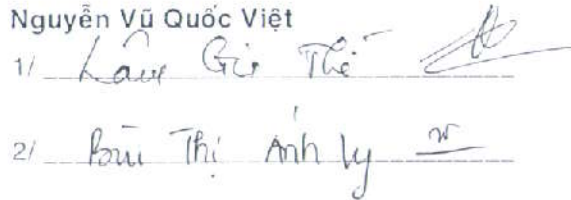 Nguyễn Vũ Quốc Việt
1/ Lâm Gia Thế
2/ Bùi Thị Ánh Ly